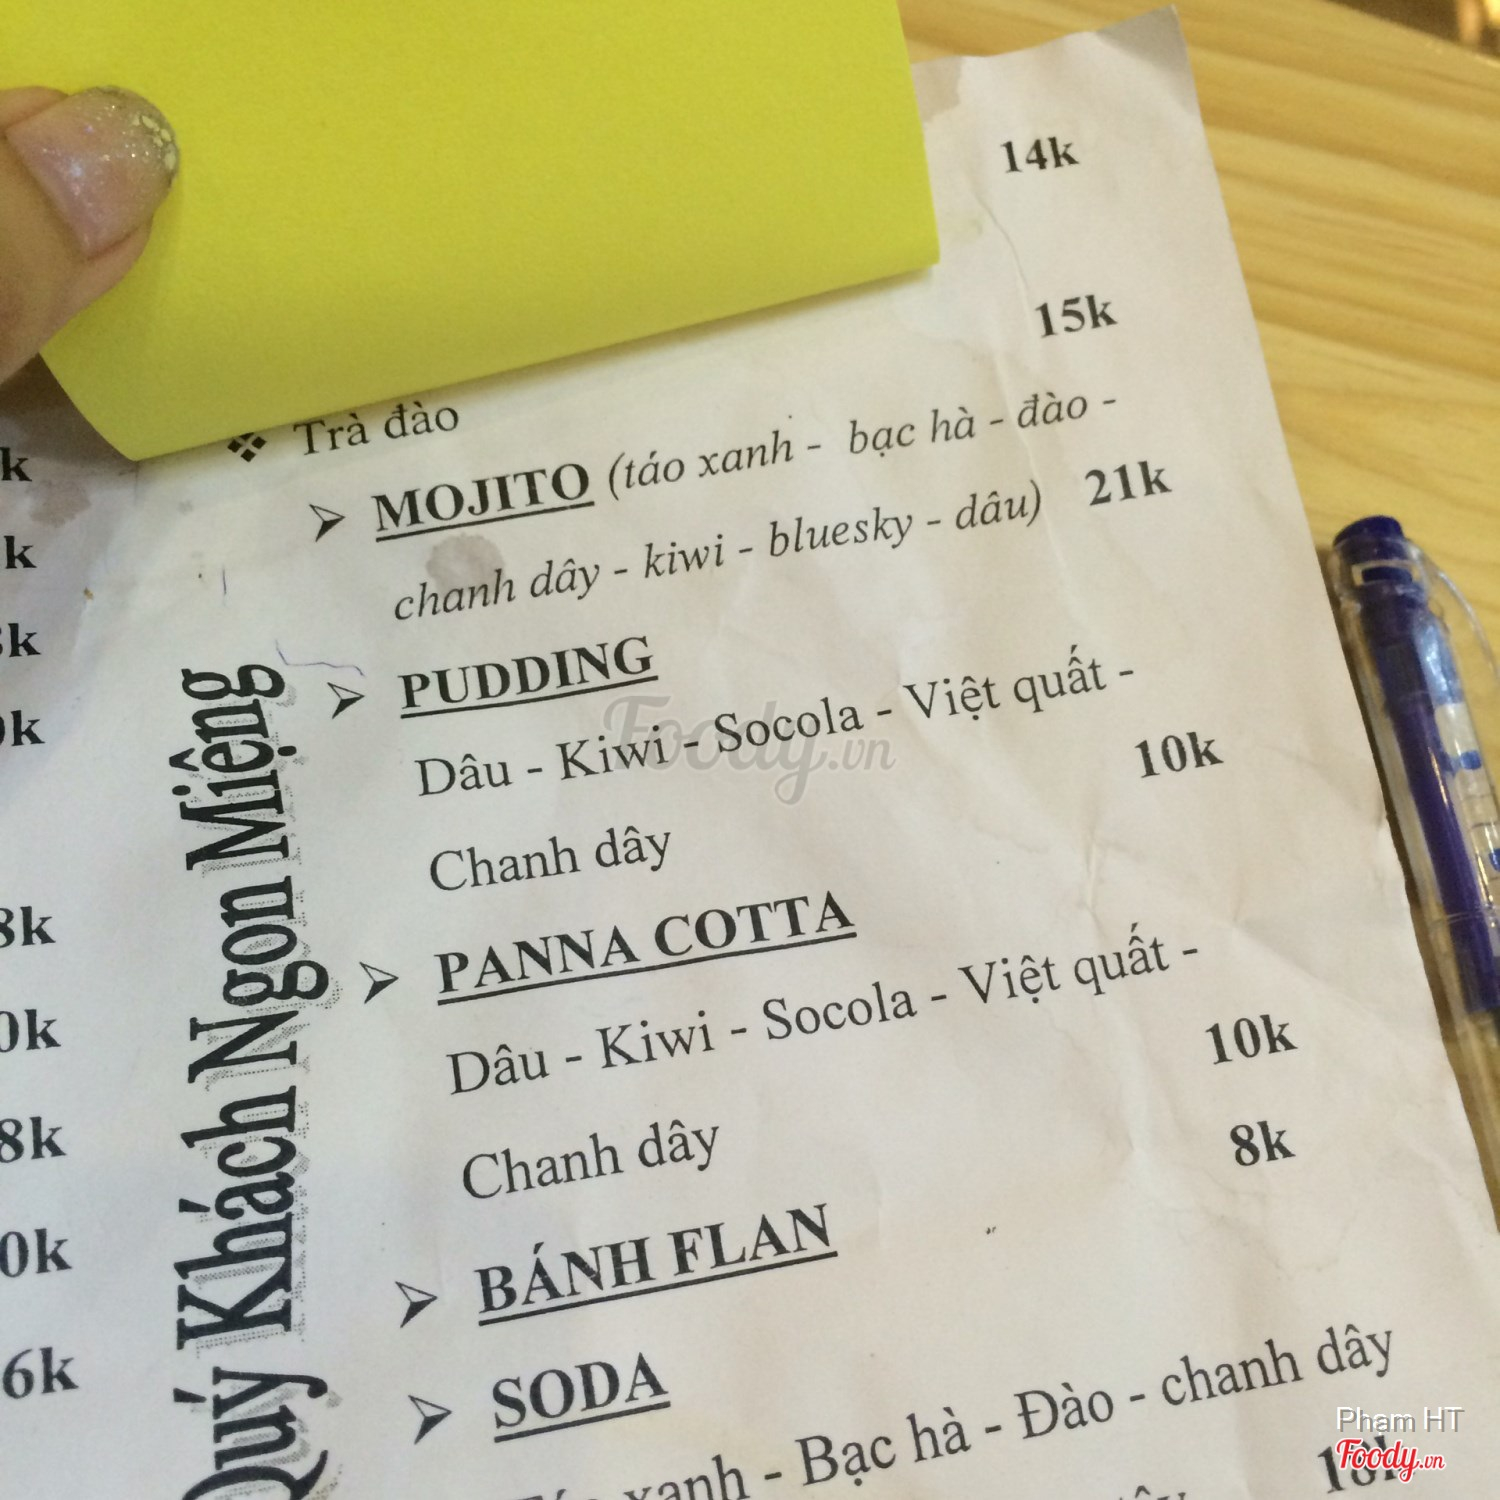 14k
15k
Trà đào
MOJITO (táo xanh - bạc hà - đào -
chanh dây - kiwi - bluesky - dâu) 21k
PUDDING
Dâu - Kiwi - Socola - Việt quất -
Chanh dây 10k
PANNA COTTA
Dâu - Kiwi - Socola - Việt quất -
Chanh dây 10k
BÁNH FLAN 8k
SODA
xanh - Bạc hà - Đào - chanh dây
Quý Khách Ngon Miệng
k
k
k
k
8k
0k
8k
0k
6k
Foody.vn
Pham HT
Foody.vn